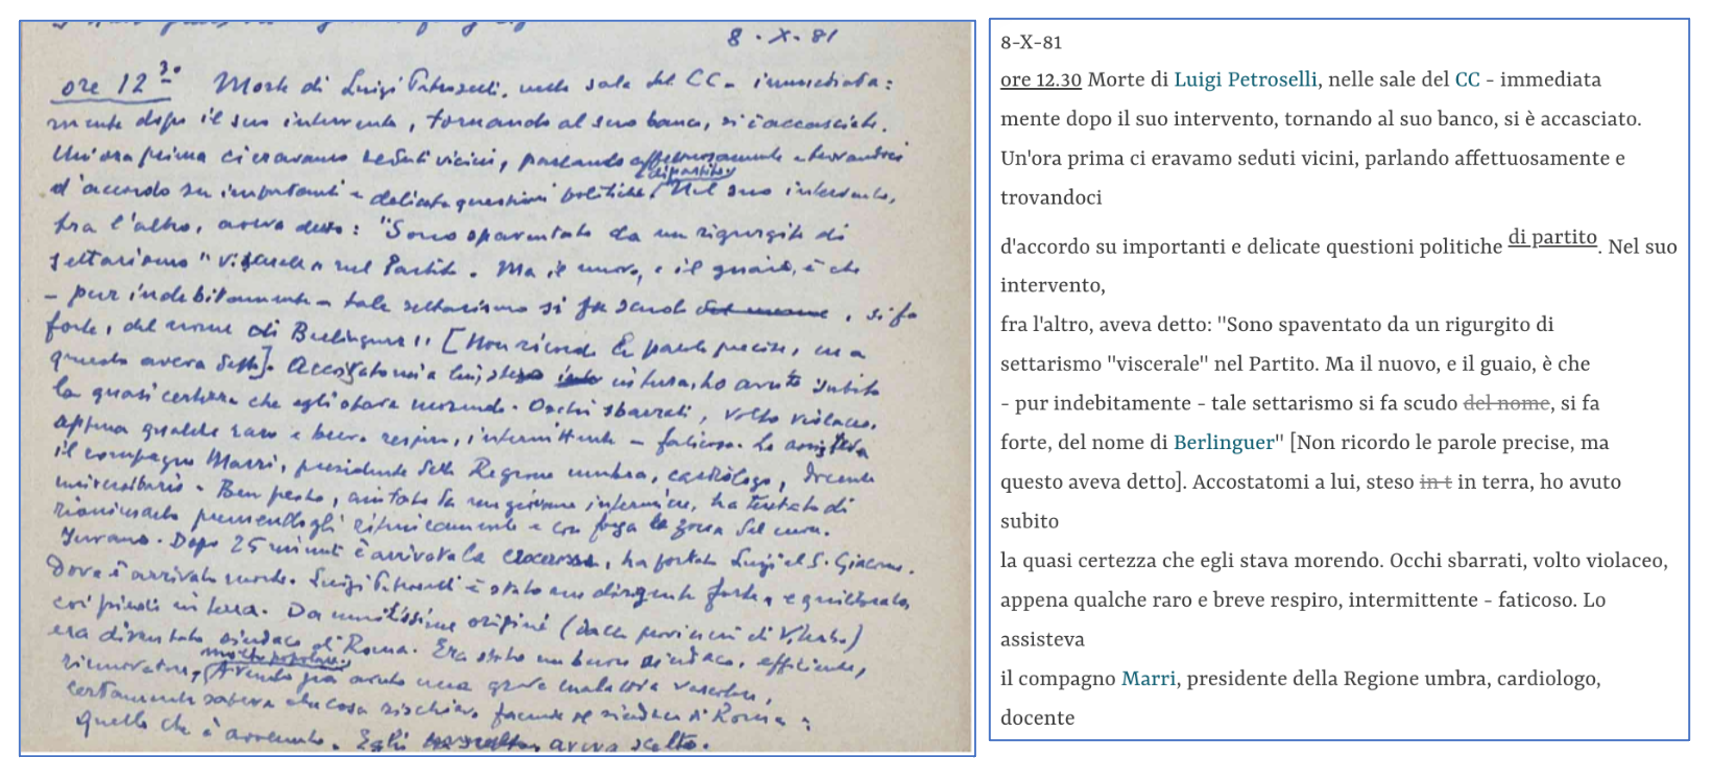 8-X-81
ore 12 30 Morte di Luigi Petroselli, nelle sale del CC - immediata:
mente dopo il suo intervento, tornando al suo banco, si è accasciato.
Un'ora prima ci eravamo seduti vicini, parlando affettuosamente e trovandoci
di partito
d'accordo su importanti e delicate questioni politiche. Nel suo intervento,
fra l'altro, aveva detto: "Sono spaventato da un rigurgito di
settarismo "viscerale" nel Partito. Ma il nuovo, e il guaio, è che
- pur indebitamente - tale settarismo si fa scudo del nome, si fa
forte, del nome di Berlinguer". [Non ricordo le parole precise, ma
questo aveva detto]. Accostatomi a lui, steso in terra, ho avuto subito
la quasi certezza che egli stava morendo. Occhi sbarrati, volto violaceo,
appena qualche raro e breve respiro, intermittente - faticoso. Lo assisteva
il compagno Marri, presidente della Regione umbra, cardiologo, docente
universitario. Ben presto, aiutato da un giovane infermiere, ha tentato di
rianimarlo premendogli ritmicamente e con forza la zona del cuore.
Invano. Dopo 25 minuti è arrivata la crocerossa, ha portato Luigi al S. Giacomo.
Dove è arrivato morto. Luigi Petroselli è stato un dirigente forte, equilibrato,
coi piedi in terra. Da umilissime origini (dalla provincia di Viterbo)
era diventato sindaco di Roma. Era stato un buon sindaco, efficiente,
molto popolare.
rinnovatore, Avendo già avuto una grave malattia vascolare,
certamente sapeva che cosa rischiava facendo il sindaco di Roma:
quello che è avvenuto. Egli aveva scelto.
8-X-81
ore 12.30 Morte di Luigi Petroselli, nelle sale del CC - immediata
mente dopo il suo intervento, tornando al suo banco, si è accasciato.
Un'ora prima ci eravamo seduti vicini, parlando affettuosamente e
trovandoci
d'accordo su importanti e delicate questioni politiche di partito. Nel suo
intervento,
fra l'altro, aveva detto: "Sono spaventato da un rigurgito di
settarismo "viscerale" nel Partito. Ma il nuovo, e il guaio, è che
- pur indebitamente - tale settarismo si fa scudo del nome, si fa
forte, del nome di Berlinguer" [Non ricordo le parole precise, ma
questo aveva detto]. Accostatomi a lui, steso in t in terra, ho avuto
subito
la quasi certezza che egli stava morendo. Occhi sbarrati, volto violaceo,
appena qualche raro e breve respiro, intermittente - faticoso. Lo
assisteva
il compagno Marri, presidente della Regione umbra, cardiologo,
docente